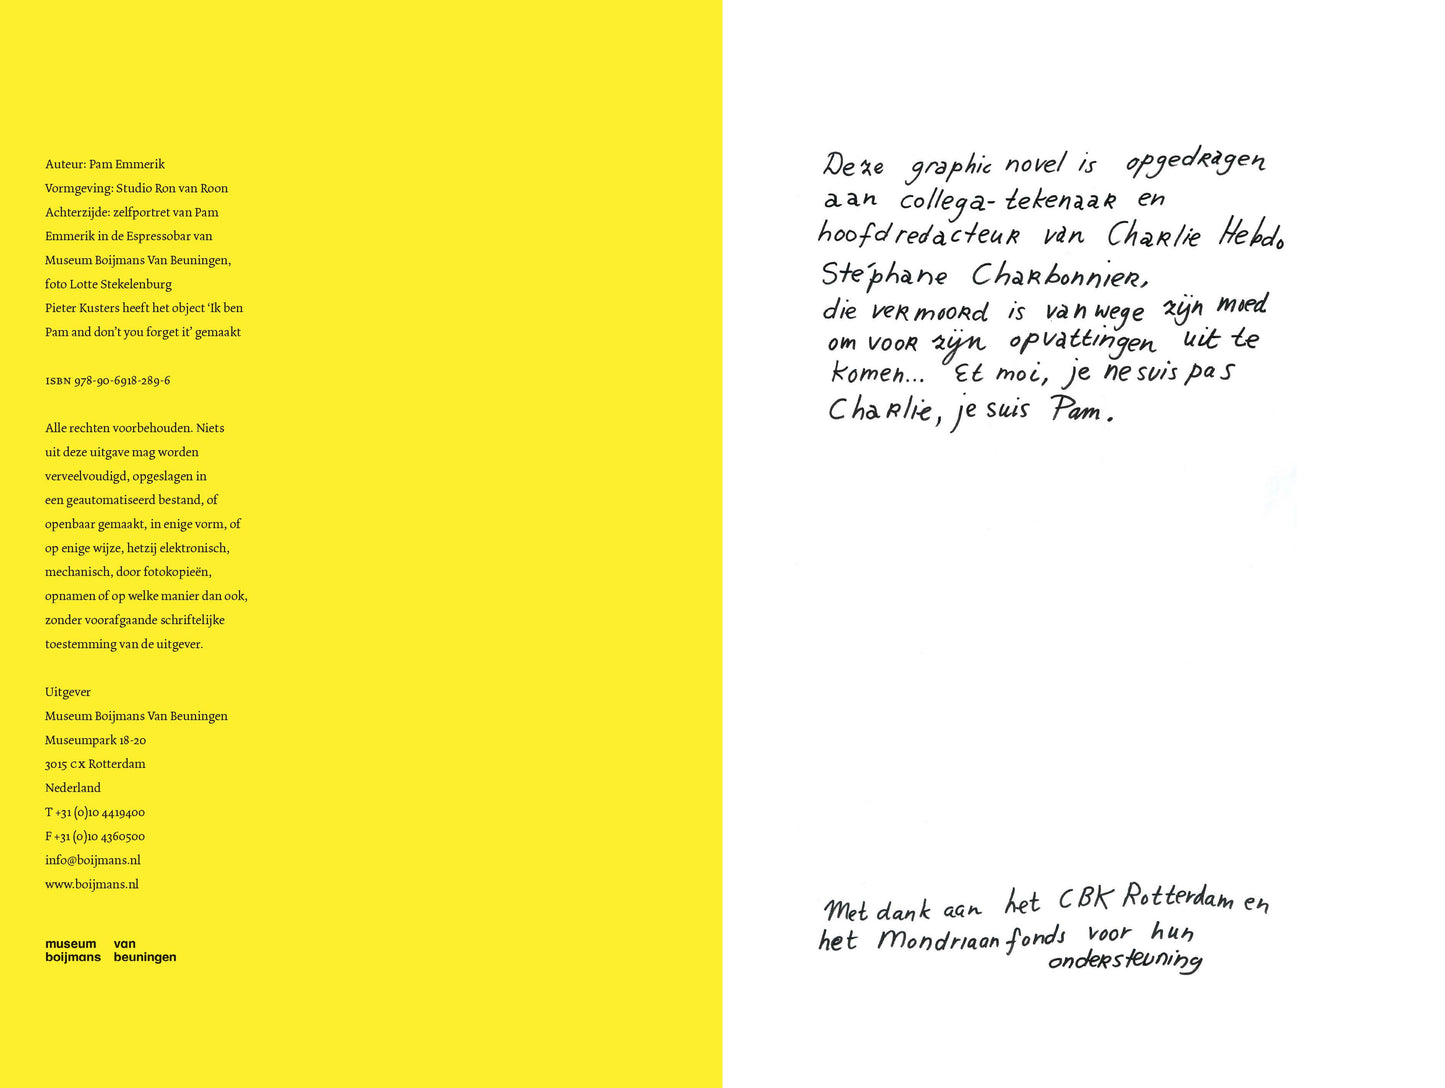 Auteur: Pam Emmerik
Vormgeving: Studio Ron van Roon
Achterzijde: zelfportret van Pam
Emmerik in de Espressobar van
Museum Boijmans Van Beuningen,
foto Lotte Stekelenburg
Pieter Kusters heeft het object ‘Ik ben
Pam and don’t you forget it’ gemaakt
ISBN 978-90-6918-289-6
Alle rechten voorbehouden. Niets
uit deze uitgave mag worden
verveelvoudigd, opgeslagen in
een geautomatiseerd bestand, of
openbaar gemaakt, in enige vorm, of
op enige wijze, hetzij elektronisch,
mechanisch, door fotokopieën,
opnamen of op welke manier dan ook,
zonder voorafgaande schriftelijke
toestemming van de uitgever.
Uitgever
Museum Boijmans Van Beuningen
Museumpark 18-20
3015 CX Rotterdam
Nederland
T +31 (0)10 4419400
F +31 (0)10 4360500
info@boijmans.nl
www.boijmans.nl
museum van
boijmans beuningen
Deze graphic novel is opgedragen
aan collega-tekenaar en
hoofdredacteur van Charlie Hebdo
Stéphane Charbonnier,
die vermoord is vanwege zijn moed
om voor zijn opvattingen uit te
komen... Et moi, je ne suis pas
Charlie, je suis Pam.
Met dank aan het CBK Rotterdam en
het Mondriaanfonds voor hun
ondersteuning